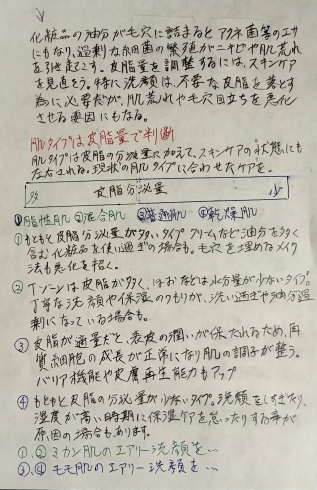 化粧品の油分が毛穴に詰まるとアクネ菌等のエサ
にもなり、過剰な細菌の繁殖がニキビや肌荒れ
を引き起こす。皮脂量を調整するには、スキンケア
を見直そう。特に洗顔は、不要な皮脂を落とす
為に必要だが、肌荒れや毛穴目立ちを悪化
させる要因にもなる。
肌タイプは皮脂量で判断
肌タイプは皮脂の分泌量に加えて、スキンケアの状態にも
左右される。現状の肌タイプに合わせたケアを。
多 皮脂分泌量 少
①脂性肌 ②混合肌 ③普通肌 ④乾燥肌
①もともと皮脂分泌量が多いタイプ。クリームなど油分を多く
含む化粧品を使い過ぎの場合も。毛穴を埋めるメイク
法も悪化を招く。
②Tゾーンは皮脂が多く、ほおなどは水分量が少ないタイプ。
丁寧な洗顔や保湿のつもりが、洗い過ぎや油分過
剰になっている場合も。
③皮脂が適量だと、表皮の潤いが保たれるため、角
質細胞の成長が正常になり肌の調子が整う。
バリア機能や皮膚再生能力もアップ
④もともと皮脂の分泌量が少ないタイプ。洗顔をしすぎたり、
湿度が高い時期に保湿ケアを怠ったりする事が
原因の場合もあります。
①、②ミカン肌のエアリー洗顔を…
③、④モモ肌のエアリー洗顔を…